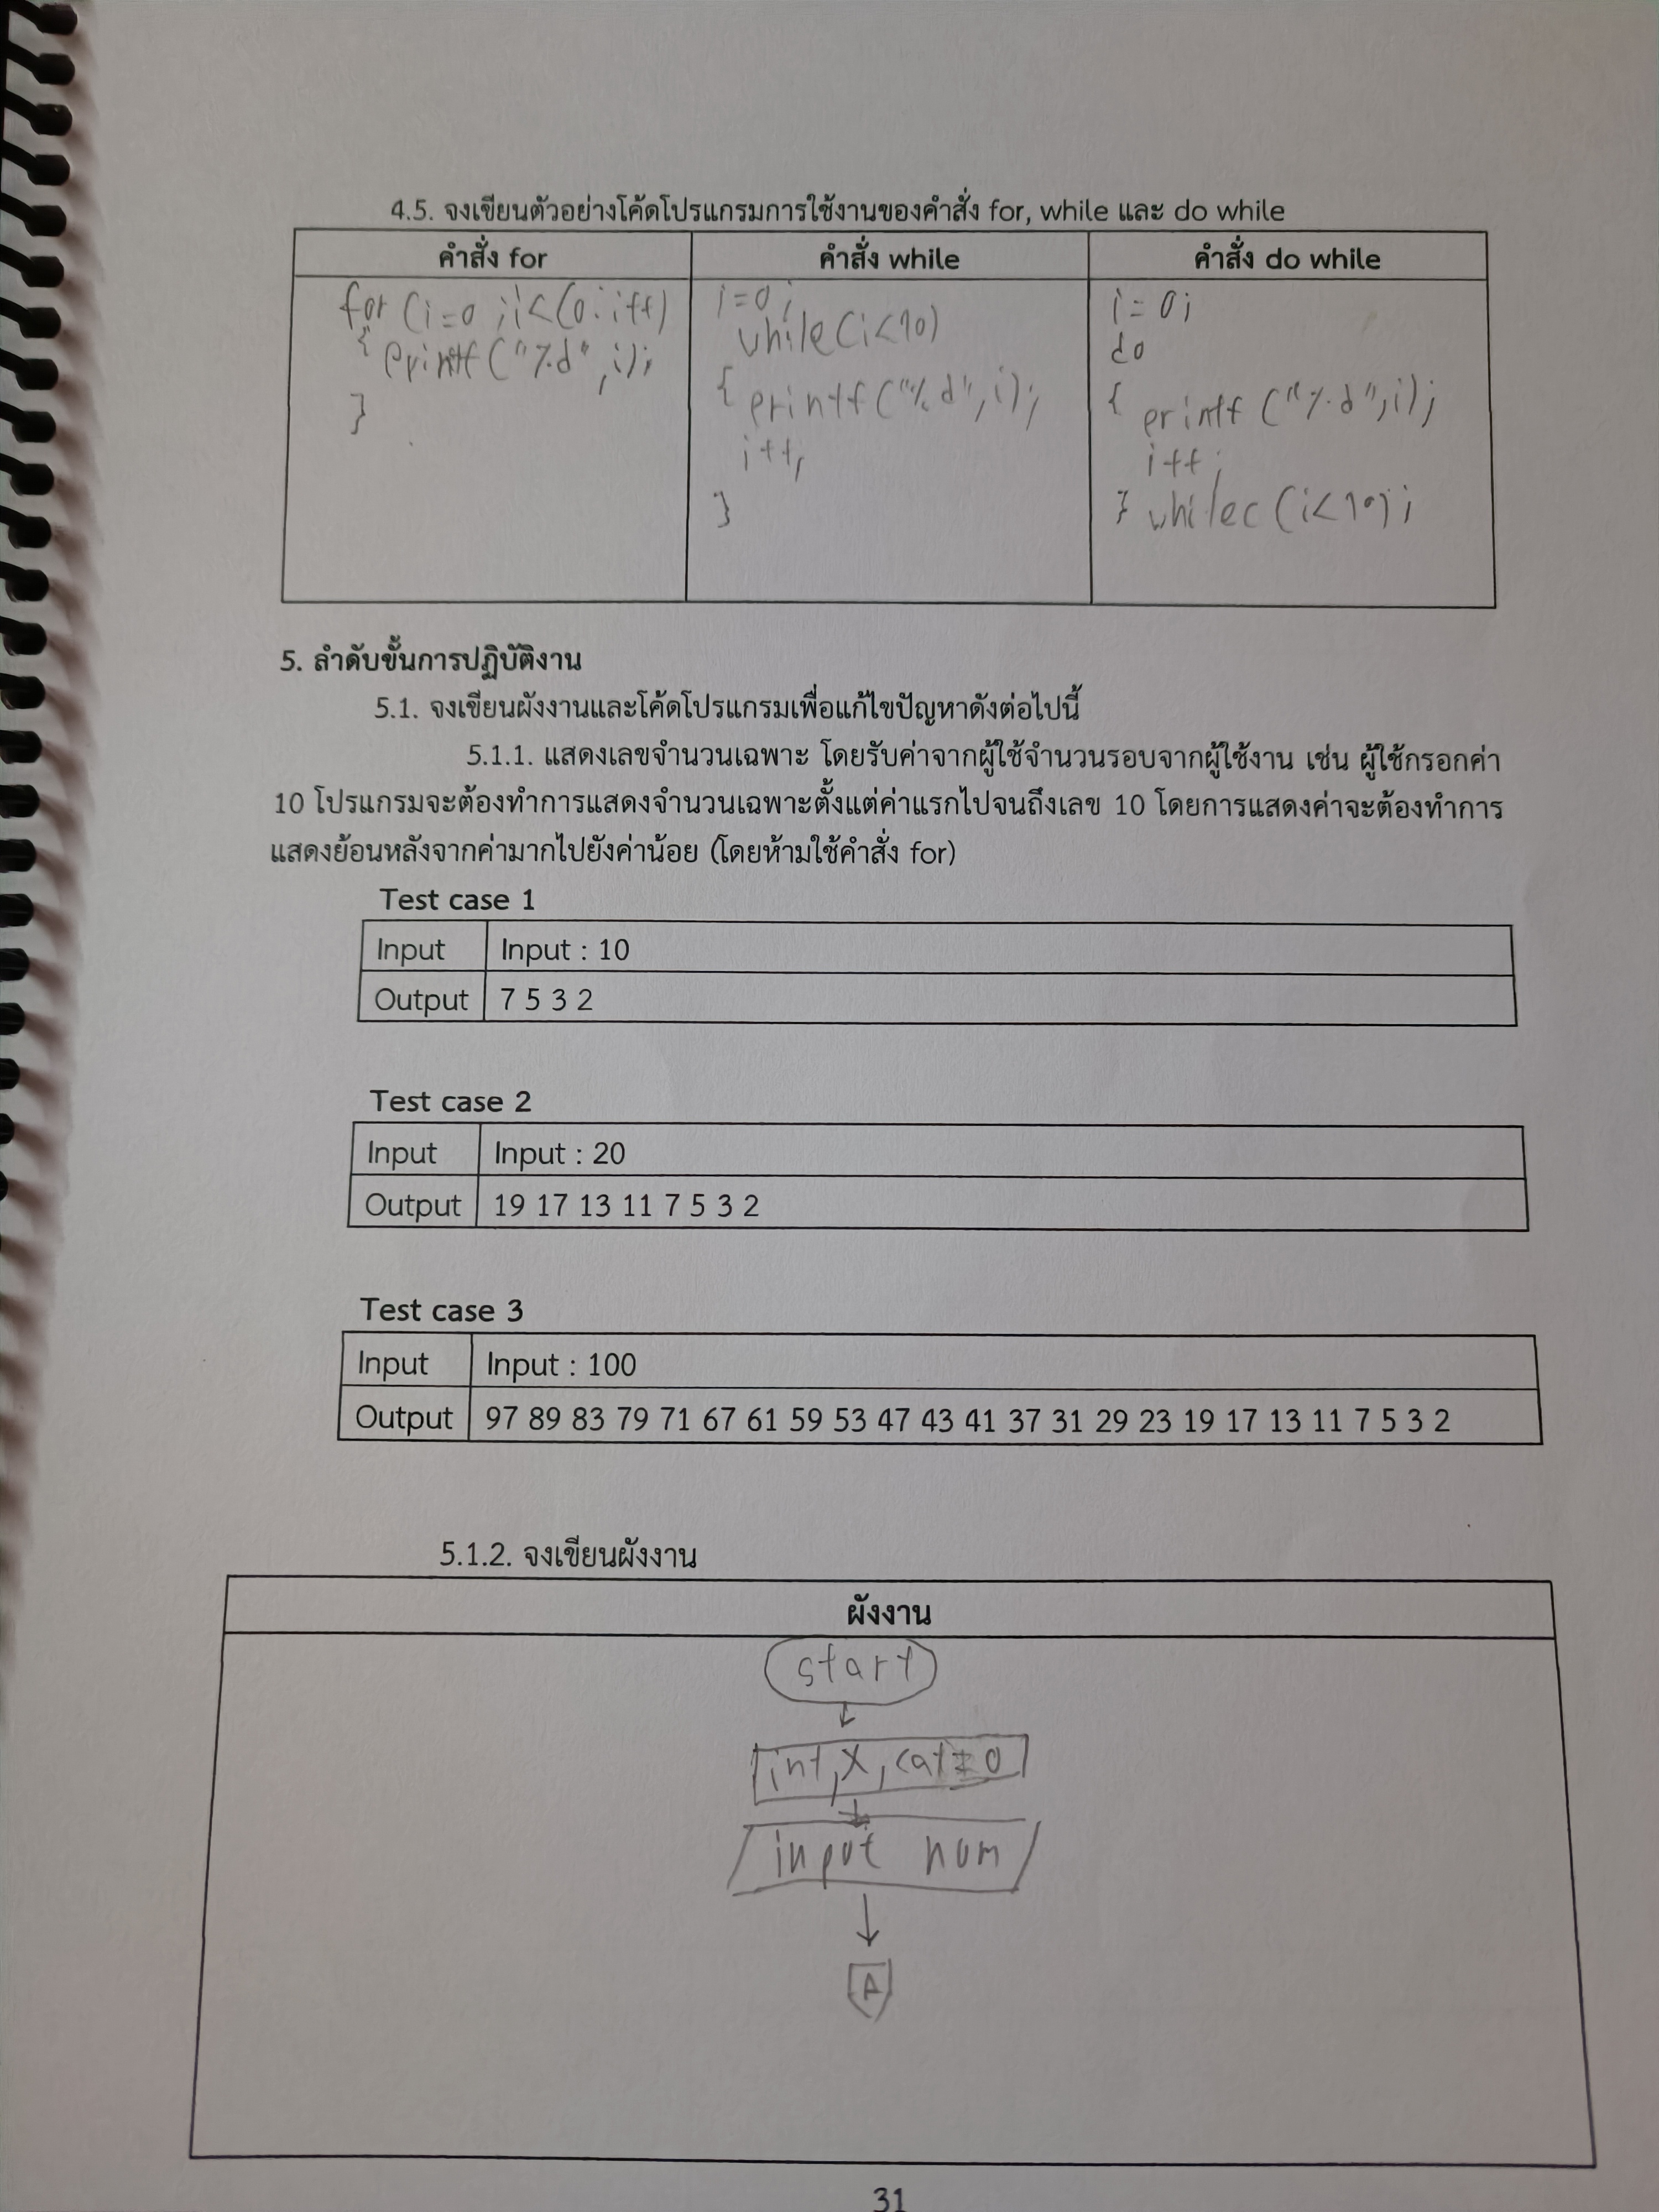 4.5. จงเขียนตัวอย่างโค้ดโปรแกรมการใช้งานของคำสั่ง for, while และ do while
คำสั่ง for
for (i=0 ;i<(0; i++)
{ printf("%d" ,i);
}
คำสั่ง while
i=0;
while(i<10)
{ printf("%d",i);
i++;
}
คำสั่ง do while
i=0;
do
{ printf ("%d",i);
i++;
} whilec (i<10);
5. ลำดับขั้นการปฏิบัติงาน
5.1. จงเขียนผังงานและโค้ดโปรแกรมเพื่อแก้ไขปัญหาดังต่อไปนี้
5.1.1. แสดงเลขจำนวนเฉพาะ โดยรับค่าจากผู้ใช้จำนวนรอบจากผู้ใช้งาน เช่น ผู้ใช้กรอกค่า
10 โปรแกรมจะต้องทำการแสดงจำนวนเฉพาะตั้งแต่ค่าแรกไปจนถึงเลข 10 โดยการแสดงค่าจะต้องทำการ
แสดงย้อนหลังจากค่ามากไปยังค่าน้อย (โดยห้ามใช้คำสั่ง for)
Test case 1
Input Input : 10
Output 7 5 3 2
Test case 2
Input Input : 20
Output 19 17 13 11 7 5 3 2
Test case 3
Input Input : 100
Output 97 89 83 79 71 67 61 59 53 47 43 41 37 31 29 23 19 17 13 11 7 5 3 2
5.1.2. จงเขียนผังงาน
ผังงาน
start
int,x, cat=0
input num
A
31